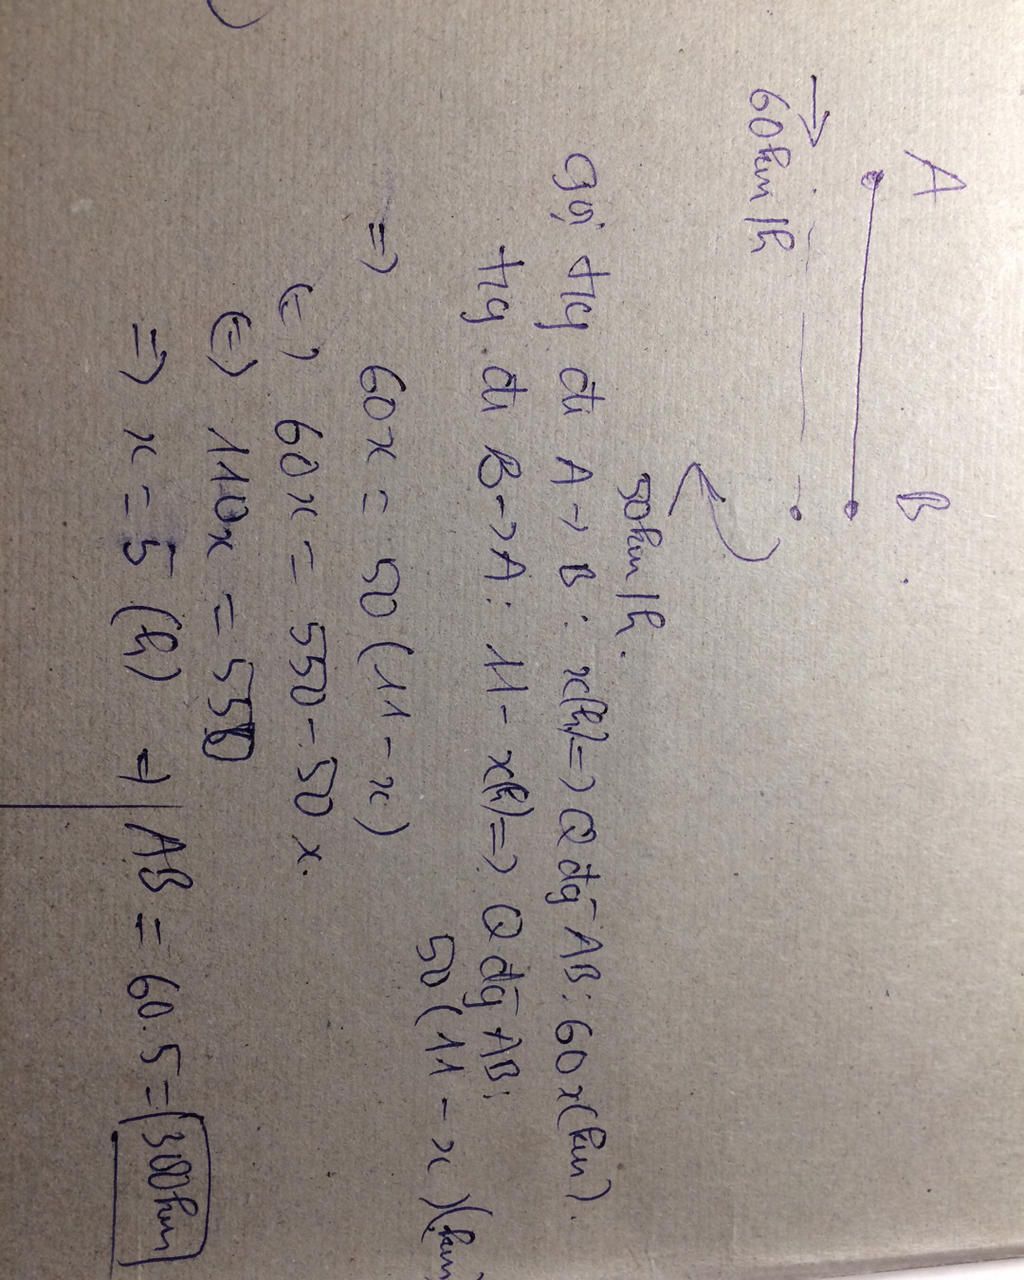 A B.
60km/h
50km/h.
Gọi tg đi A → B : x(h) => Qđg AB: 60x(km).
tg đi B → A : 11 - x(h) => Qđg AB:
50(11 - x)(km)
=> 60x = 50(11 - x)
(=) 60x = 550 - 50x.
(=) 110x = 550
=> x = 5 (h) => AB = 60.5 = 300km